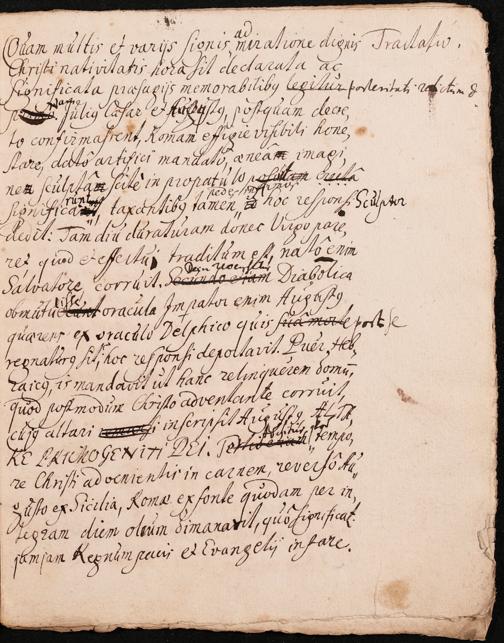 Quam multis et varijs signis, ad miratione dignis Tractatio.
Christi nativitatis hora sit declarata ac
significata præsagijs memorabilibus legitur posteritati relictum
Nam Julius Cæsar et Augustus, postquam decre,
to confirmassent, Romam effigie visibili hone,
stare, dato artifici mandato, æneam imagi,
nem sculptam scitè in propatulo
significarunt, taxantibus tamen, hoc respons. Sculptor
dedit: Tam diu duraturam donec Virgo pare,
ret quod et effectui traditum est, nato enim
Salvatore, corruit. Diabolica
obmutuisse oracula Imperator enim Augustus
quærens ex oraculo Delphico quis post se
regnaturus sit, hoc responsi deportavit. Puer Heb,
raicus, is mandavit ut hanc relinquerem domū,
quod postmodum Christo adventante corruit,
cujus altari inscripsit Augustus, ARA,
RE PRIMOGENITI DEI. tempo,
re Christi advenientis in carnem, reverso Au,
gusto ex Sicilia, Romæ ex fonte quodam per in,
tegram diem oleum dimanavit, quo significat.
jamjam Regnum pacis et Evangelij instare.